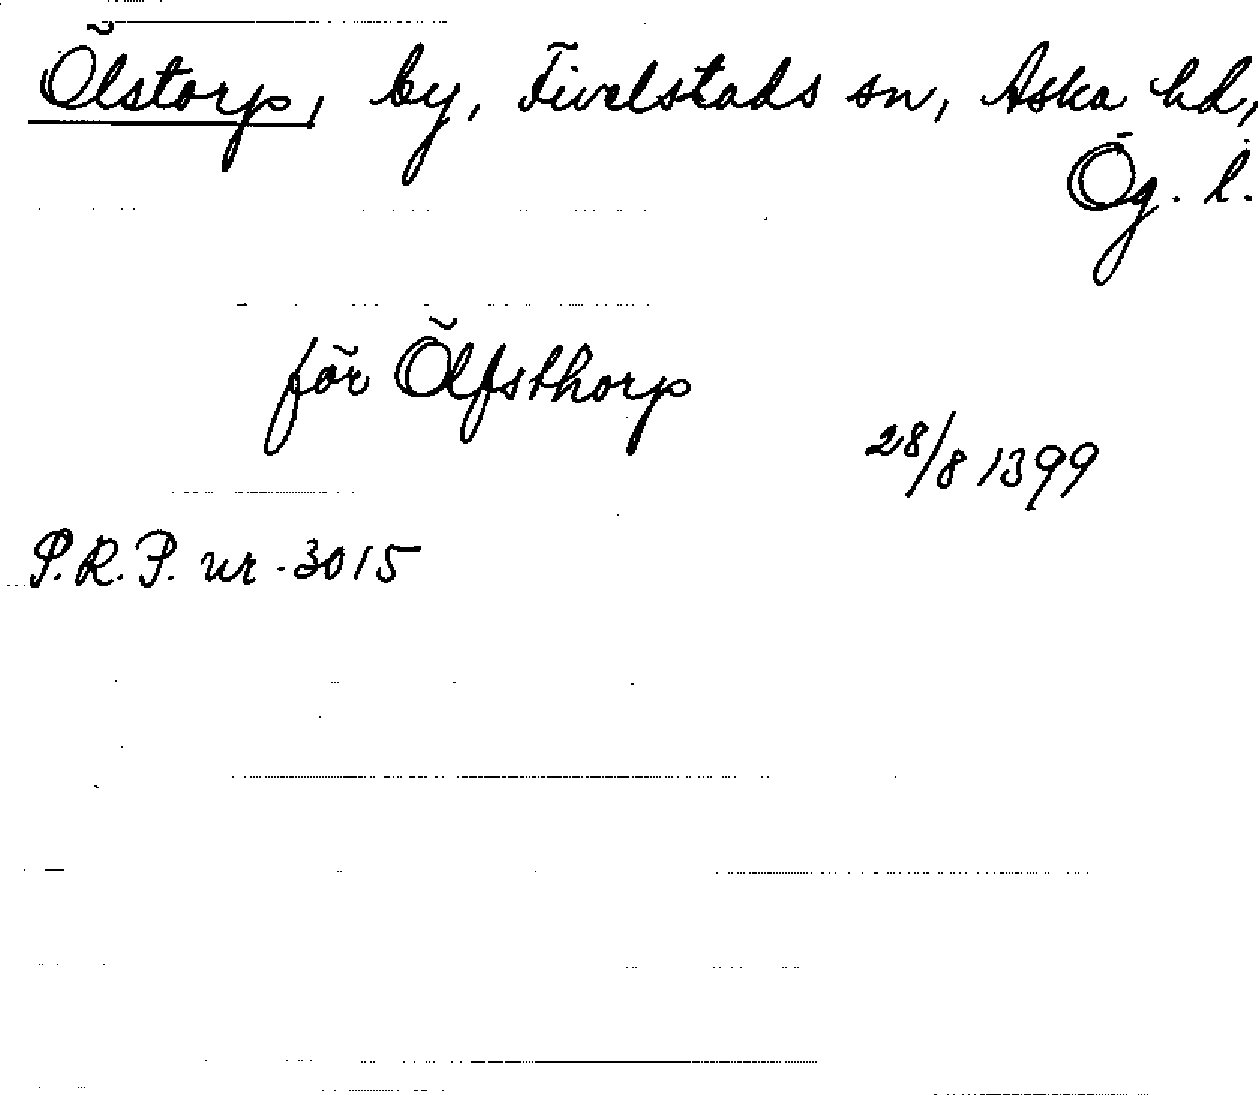 Ölstorp, by, Fivelstads sn, Aska hd,
Ög. l.
för Ölfsthorp
28/8 1399
P.R.P. nr. 3015